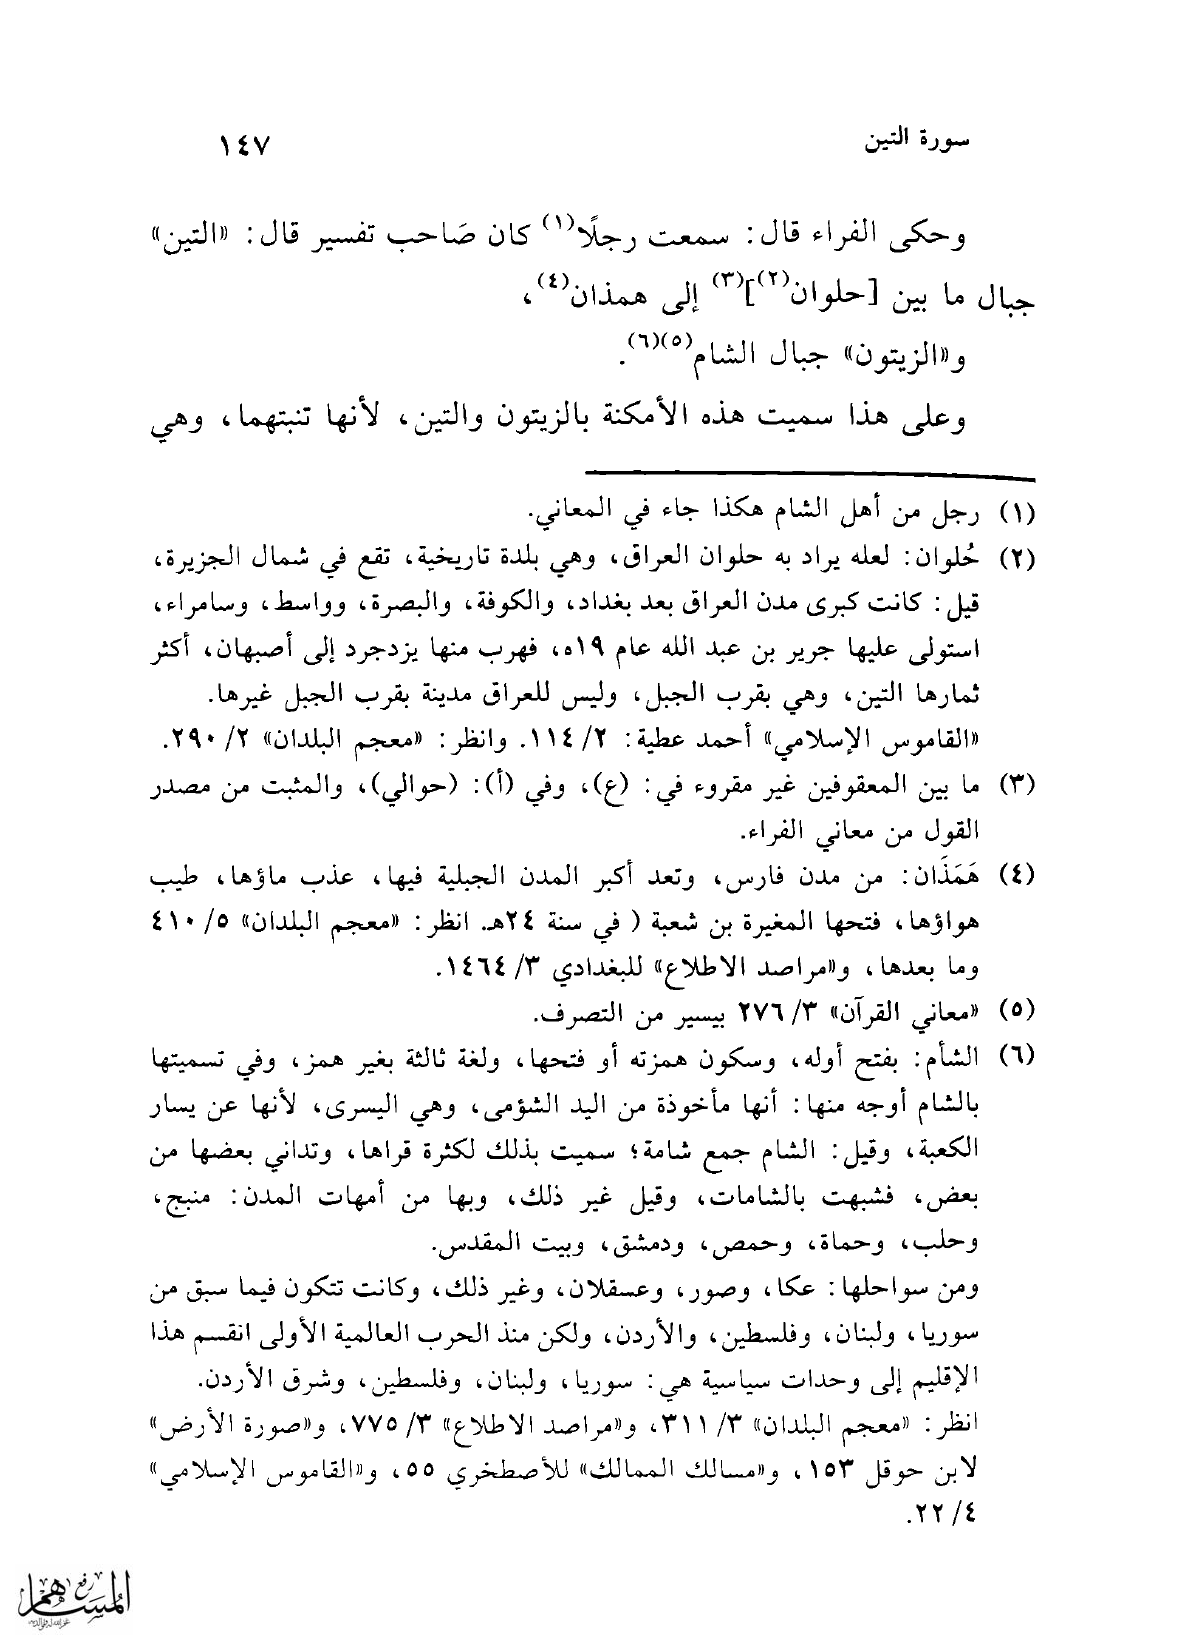 سورة التين
١٤٧
وحكى الفراء قال: سمعت رجلًا(١) كان صَاحب تفسير قال: «التين»
جبال ما بين [حلوان(٢)](٣) إلى همذان(٤)،
و«الزيتون» جبال الشام(٥)(٦).
وعلى هذا سميت هذه الأمكنة بالزيتون والتين، لأنها تنبتهما، وهي
(١) رجل من أهل الشام هكذا جاء في المعاني.
(٢) حُلوان: لعله يراد به حلوان العراق، وهي بلدة تاريخية، تقع في شمال الجزيرة،
قيل: كانت كبرى مدن العراق بعد بغداد، والكوفة، والبصرة، وواسط، وسامراء،
استولى عليها جرير بن عبد الله عام ١٩ه، فهرب منها يزدجرد إلى أصبهان، أكثر
ثمارها التين، وهي بقرب الجبل، وليس للعراق مدينة بقرب الجبل غيرها.
«القاموس الإسلامي» أحمد عطية: ٢/ ١١٤. وانظر: «معجم البلدان» ٢/ ٢٩٠.
(٣) ما بين المعقوفين غير مقروء في: (ع)، وفي (أ): (حوالي)، والمثبت من مصدر
القول من معاني الفراء.
(٤) هَمَذَان: من مدن فارس، وتعد أكبر المدن الجبلية فيها، عذب ماؤها، طيب
هواؤها، فتحها المغيرة بن شعبة ( في سنة ٢٤هـ. انظر: «معجم البلدان» ٥/ ٤١٠
وما بعدها، و«مراصد الاطلاع» للبغدادي ٣/ ١٤٦٤.
(٥) «معاني القرآن» ٣/ ٢٧٦ بيسير من التصرف.
(٦) الشأم: بفتح أوله، وسكون همزته أو فتحها، ولغة ثالثة بغير همز، وفي تسميتها
بالشام أوجه منها: أنها مأخوذة من اليد الشؤمى، وهي اليسرى، لأنها عن يسار
الكعبة، وقيل: الشام جمع شامة؛ سميت بذلك لكثرة قراها، وتداني بعضها من
بعض، فشبهت بالشامات، وقيل غير ذلك، وبها من أمهات المدن: منبج،
وحلب، وحماة، وحمص، ودمشق، وبيت المقدس.
ومن سواحلها: عكا، وصور، وعسقلان، وغير ذلك، وكانت تتكون فيما سبق من
سوريا، ولبنان، وفلسطين، والأردن، ولكن منذ الحرب العالمية الأولى انقسم هذا
الإقليم إلى وحدات سياسية هي: سوريا، ولبنان، وفلسطين، وشرق الأردن.
انظر: «معجم البلدان» ٣/ ٣١١، و«مراصد الاطلاع» ٣/ ٧٧٥، و«صورة الأرض»
لابن حوقل ١٥٣، و«مسالك الممالك» للأصطخري ٥٥، و«القاموس الإسلامي»
٤/ ٢٢.
رفع
المساهم